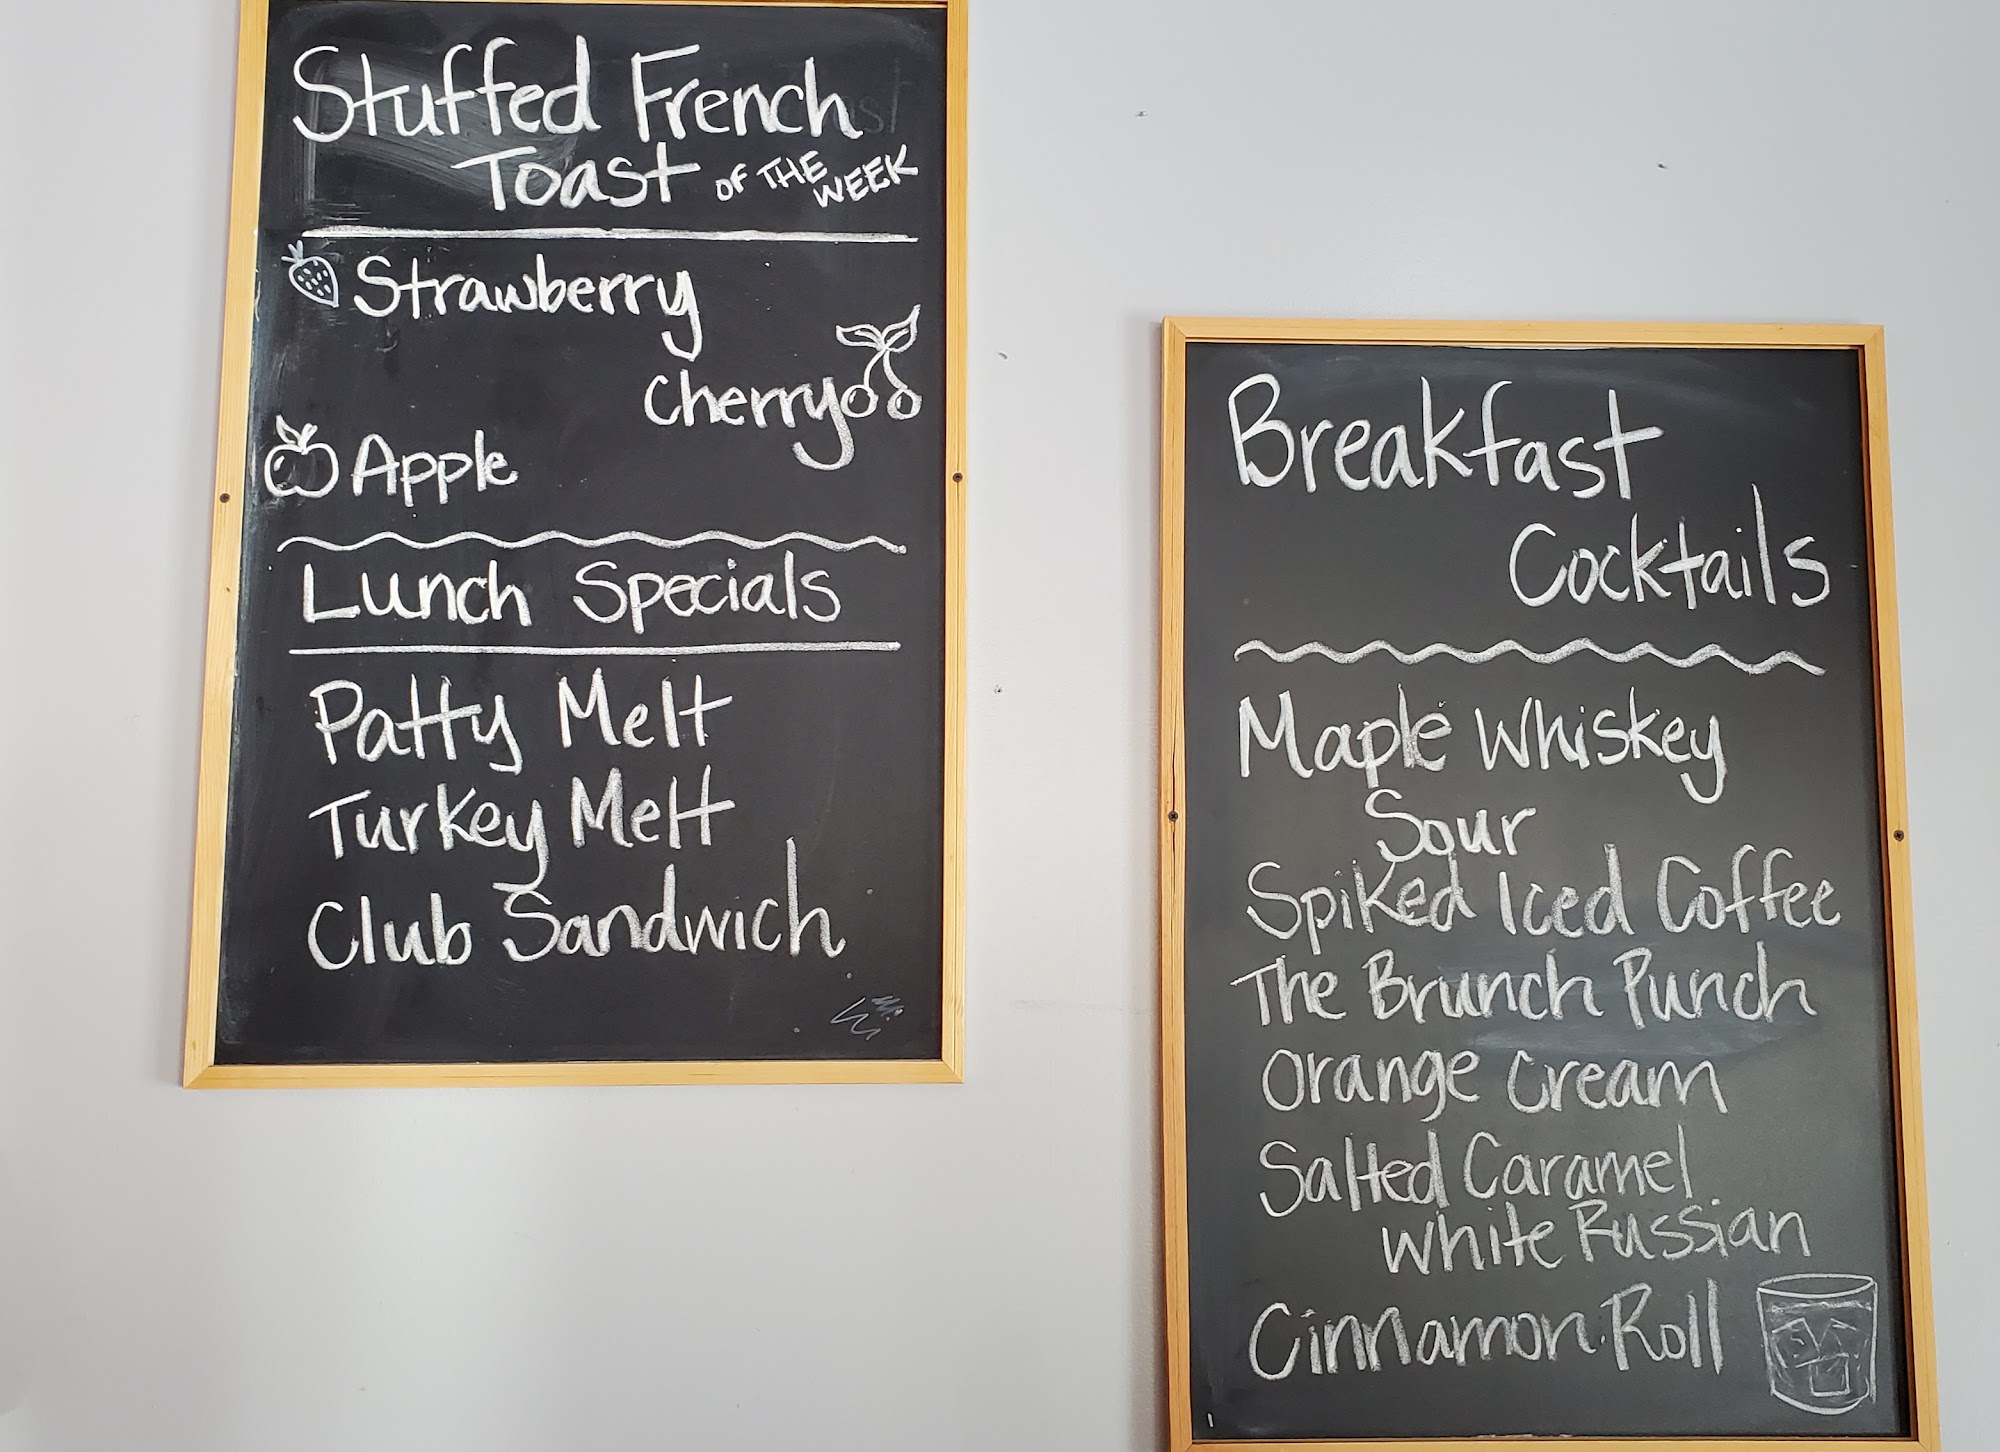 Stuffed French
Toast OF THE WEEK
Strawberry
Cherry
Apple
Lunch Specials
Patty Melt
Turkey Melt
Club Sandwich
Breakfast
Cocktails
Maple Whiskey
Sour
Spiked Iced Coffee
The Brunch Punch
Orange Cream
Salted Caramel
White Russian
Cinnamon Roll